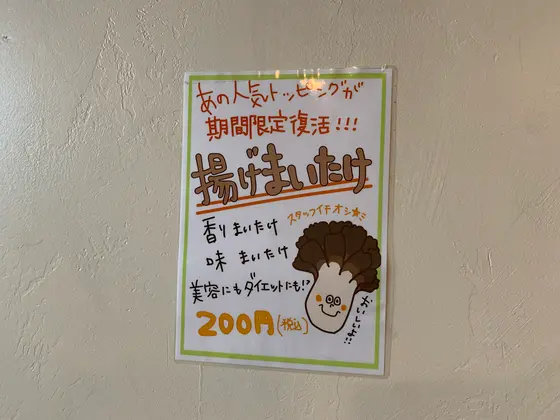 あの人気トッピングが
期間限定復活!!!
揚げまいたけ
スタッフイチオシ★ミ
香りまいたけ
味 まいたけ
美容にもダイエットにも!?
200円(税込)
おいしいよ!!